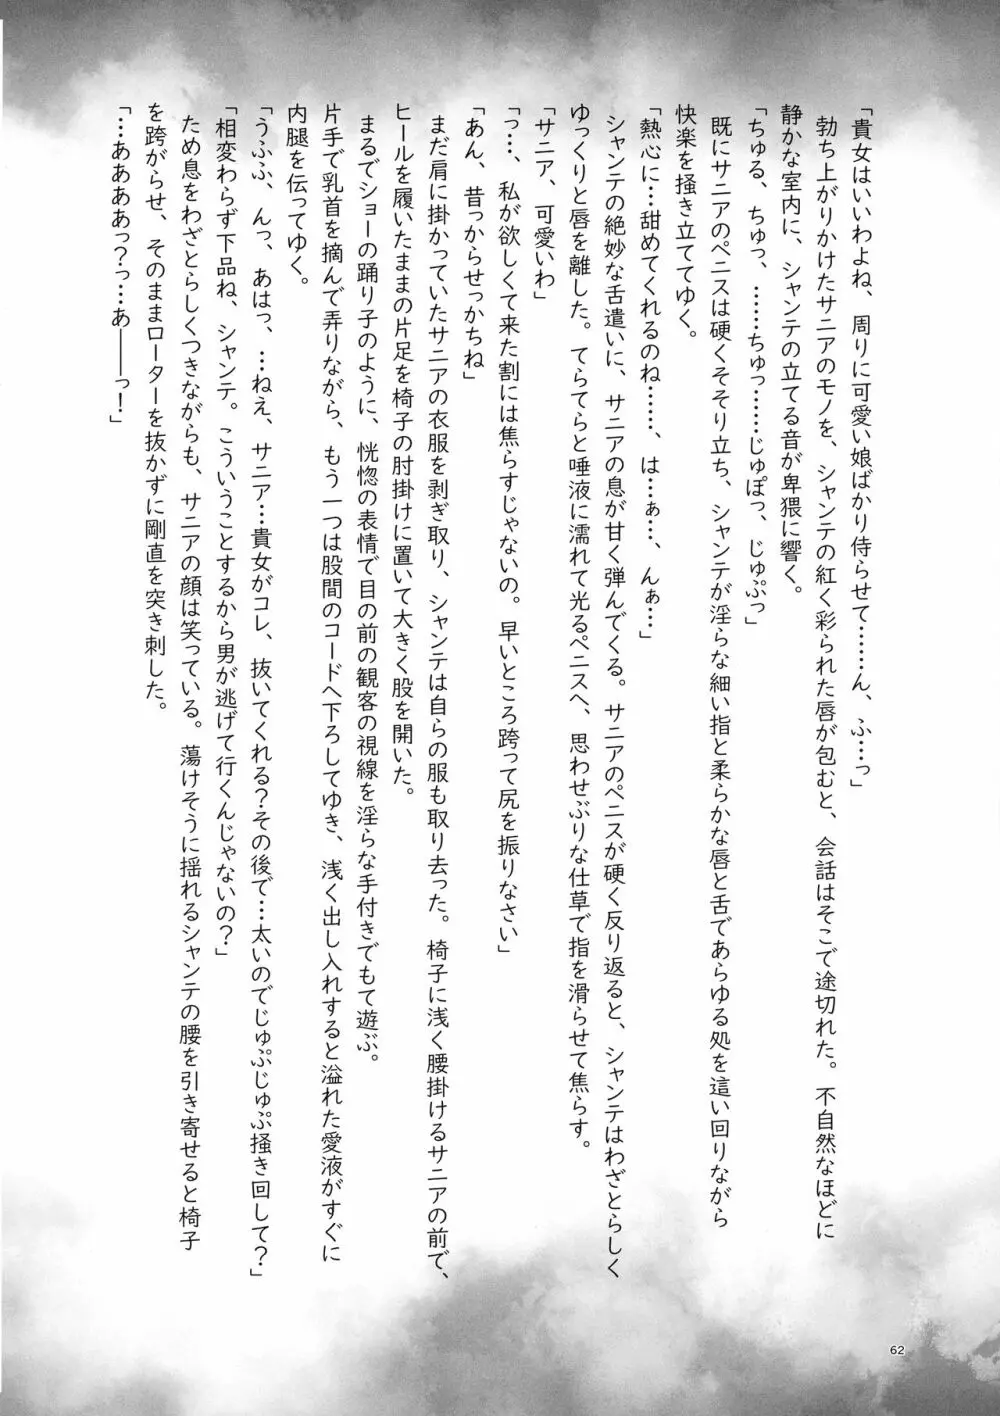 「貴女はいいわよね、周りに可愛い娘ばかり侍らせて………ん、ふ…っ」
勃ち上がりかけたサニアのモノを、シャンテの紅く彩られた唇が包むと、会話はそこで途切れた。不自然なほどに
静かな室内に、シャンテの立てる音が卑猥に響く。
「ちゅる、ちゅっ、……ちゅっ……じゅぽっ、じゅぷっ」
既にサニアのペニスは硬くそそり立ち、シャンテが淫らな細い指と柔らかな唇と舌であらゆる処を這い回りながら
快楽を掻き立ててゆく。
「熱心に…甜めてくれるのね……、は…ぁ…、んぁ…」
シャンテの絶妙な舌遣いに、サニアの息が甘く弾んでくる。サニアのペニスが硬く反り返ると、シャンテはわざとらしく
ゆっくりと唇を離した。てらてらと唾液に濡れて光るペニスへ、思わせぶりな仕草で指を滑らせて焦らす。
「サニア、可愛いわ」
「っ…、私が欲しくて来た割には焦らすじゃないの。早いところ跨って尻を振りなさい」
「あん、昔っからせっかちね」
まだ肩に掛かっていたサニアの衣服を剥ぎ取り、シャンテは自らの服も取り去った。椅子に浅く腰掛けるサニアの前で、
ヒールを履いたままの片足を椅子の肘掛けに置いて大きく股を開いた。
まるでショーの踊り子のように、恍惚の表情で目の前の観客の視線を淫らな手付きでもて遊ぶ。
片手で乳首を摘んで弄りながら、もう一つは股間のコードへ下ろしてゆき、浅く出し入れすると溢れた愛液がすぐに
内腿を伝ってゆく。
「うふふ、んっ、あはっ、…ねえ、サニア…貴女がコレ、抜いてくれる？その後で…太いのでじゅぷじゅぷ掻き回して？」
「相変わらず下品ね、シャンテ。こういうことするから男が逃げて行くんじゃないの？」
ため息をわざとらしくつきながらも、サニアの顔は笑っている。蕩けそうに揺れるシャンテの腰を引き寄せると椅子
を跨がらせ、そのままローターを抜かずに剛直を突き刺した。
「…ああああっ？っ…あ――っ！」
62